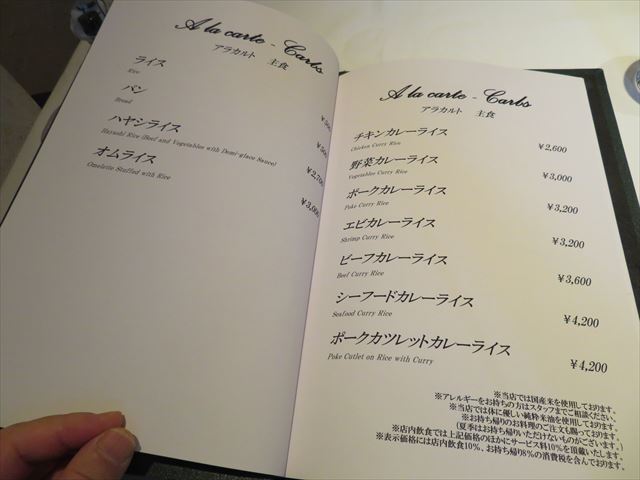 A la carte - Carbs
アラカルト 主食
ライス
Rice
パン
Bread
ハヤシライス
Hayashi Rice (Beef and Vegetables with Demi-glace Sauce)
オムライス
Omelette Stuffed with Rice
¥500
¥500
¥2,700
¥3,000
A la carte - Carbs
アラカルト 主食
チキンカレーライス ¥2,600
Chicken Curry Rice
野菜カレーライス ¥3,000
Vegetables Curry Rice
ポークカレーライス ¥3,200
Poke Curry Rice
エビカレーライス ¥3,200
Shrimp Curry Rice
ビーフカレーライス ¥3,600
Beef Curry Rice
シーフードカレーライス ¥4,200
Seafood Curry Rice
ポークカツレットカレーライス ¥4,200
Poke Cutlet on Rice with Curry
※当店では国産米を使用しております。
※アレルギーをお持ちの方はスタッフまでご相談ください。
※当店では体に優しい純粋米油を使用しております。
※お持ち帰りのお料理のご注文も賜っております。
(夏季はお持ち帰りいただけないものがございます。)
※店内飲食では上記価格のほかにサービス料10%を頂戴いたします。
※表示価格には店内飲食10%、お持ち帰り8%の消費税を含んでおります。